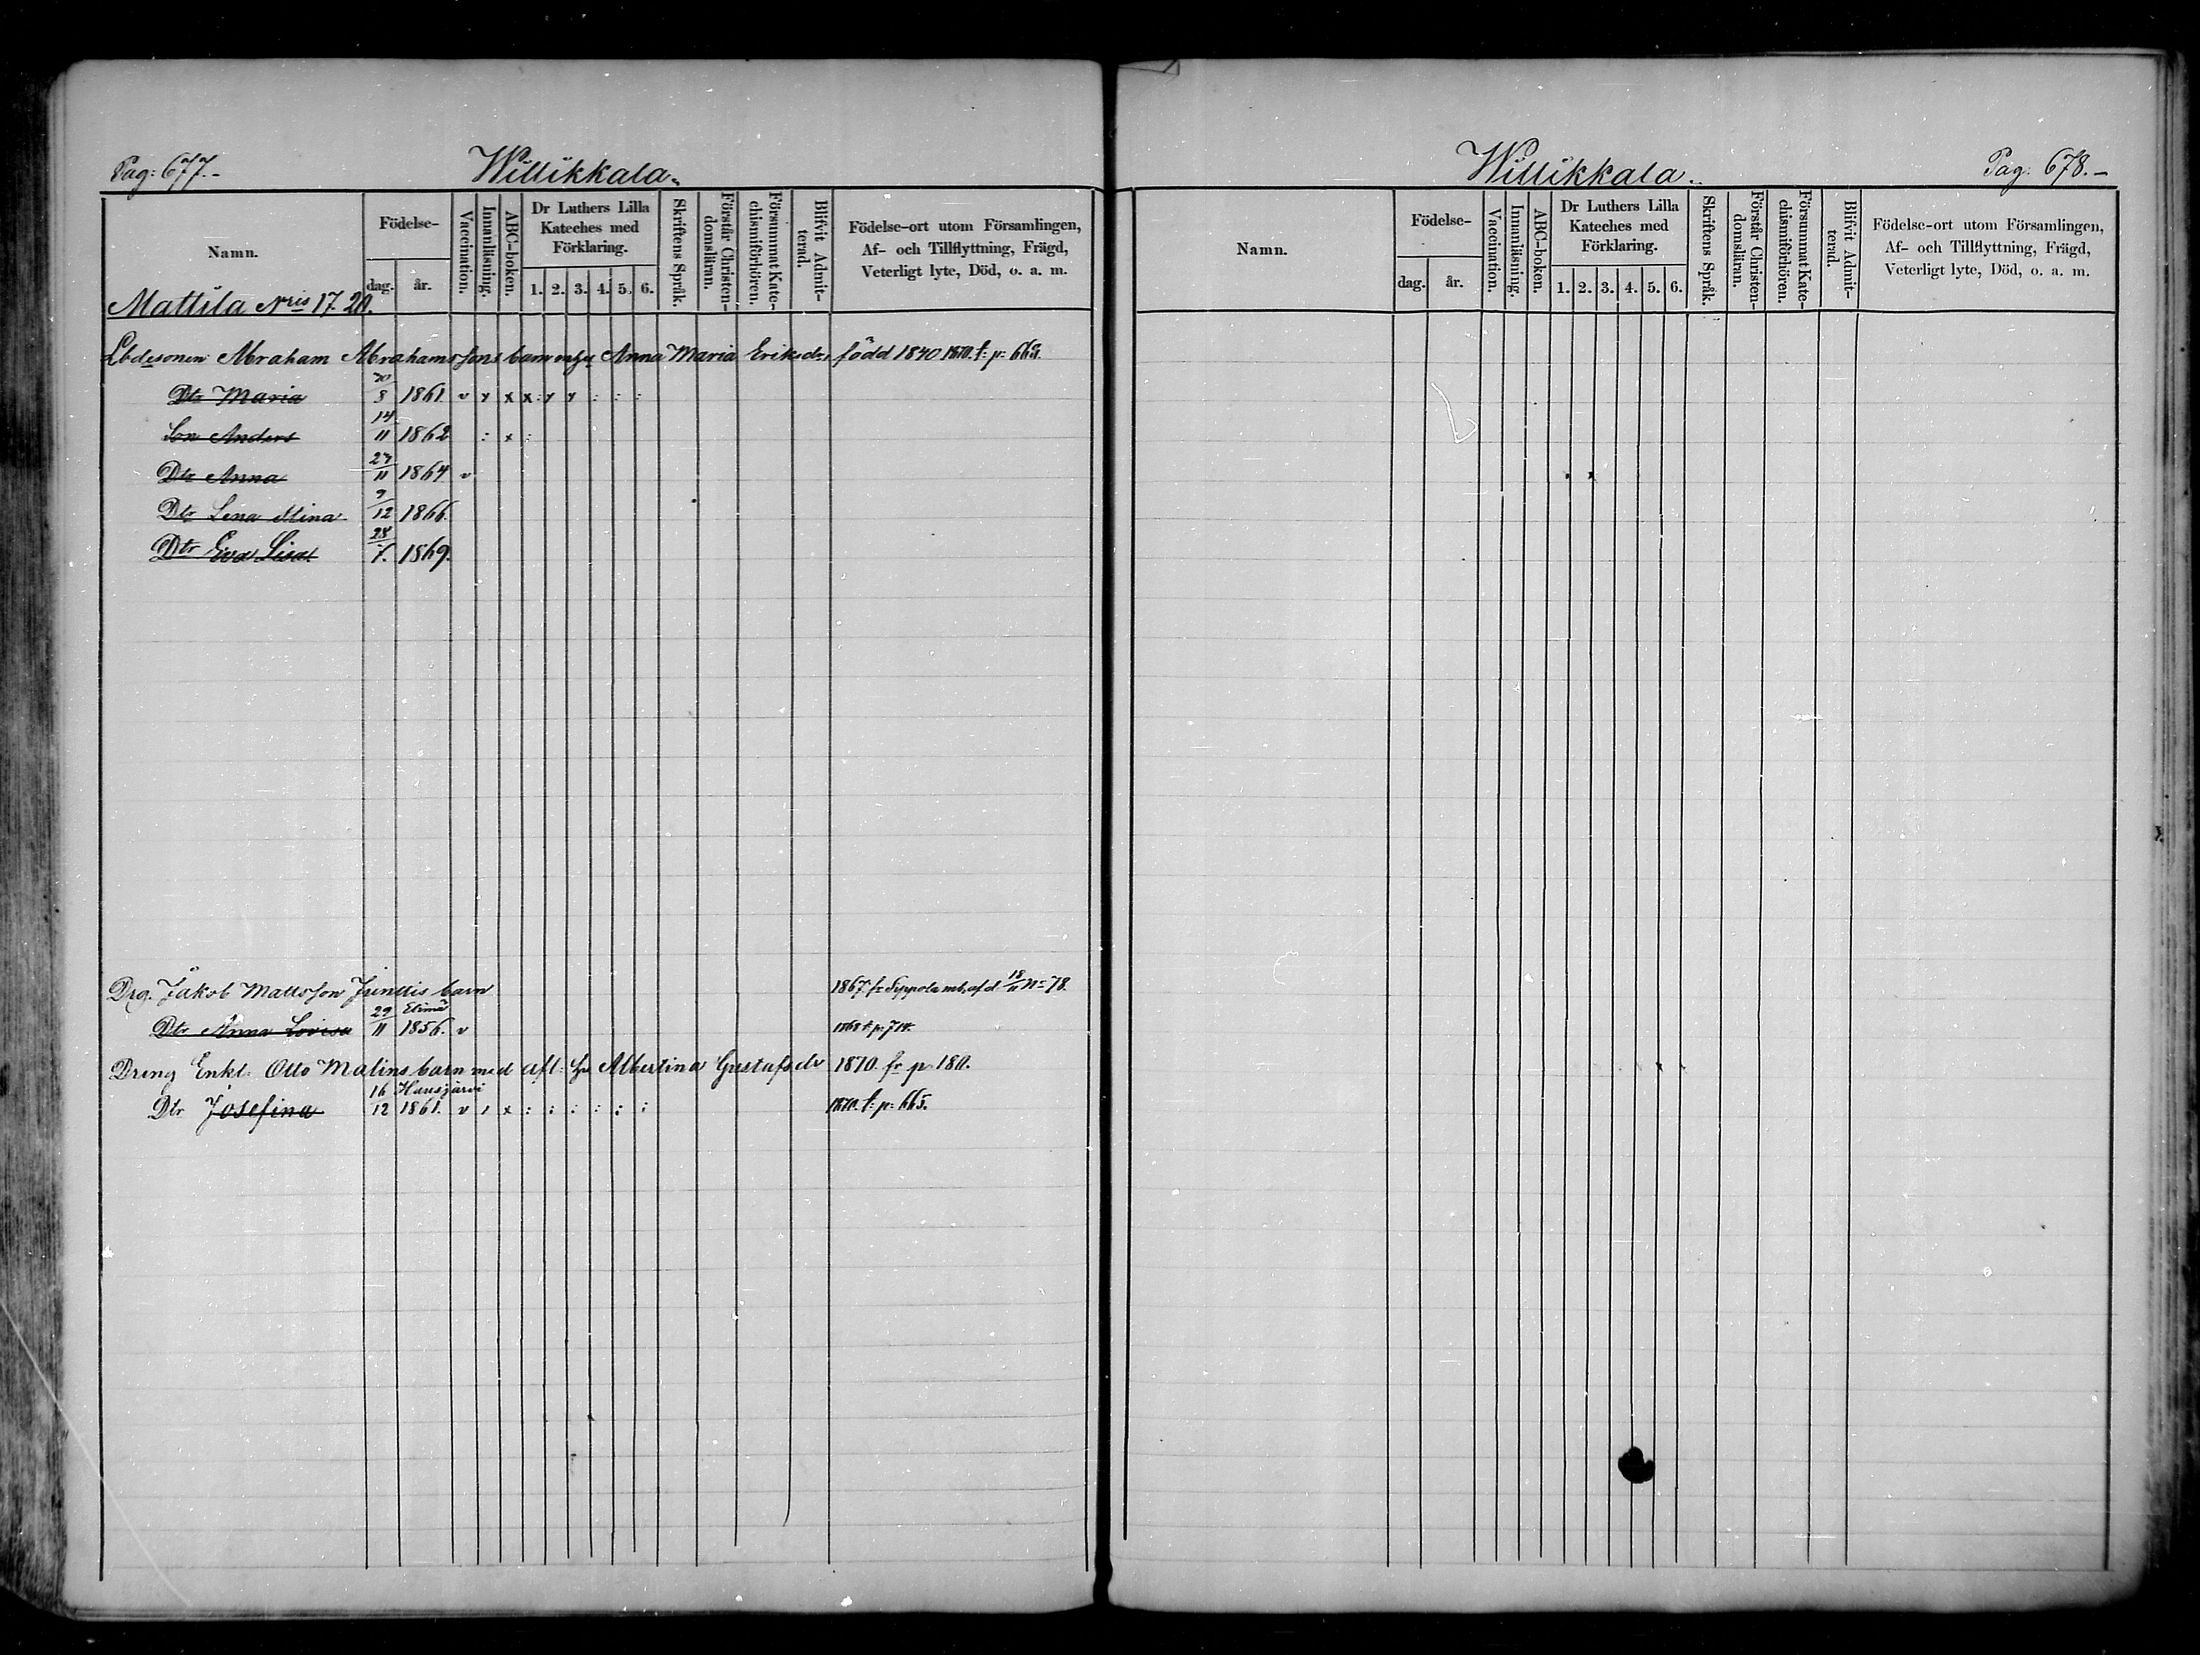 Pag: 677.-
Willikkala.
Namn.
Födelse-
dag. år.
Vaccination.
Innanläsning.
ABC-boken.
Dr Luthers Lilla Kateches med Förklaring.
1. 2. 3. 4. 5. 6.
Skriftens Språk.
Förstår Christen-domsläran.
Försummat Kate-chismiförhören.
Blifvit Admit-terad.
Födelse-ort utom Församlingen,
Af- och Tillflyttning, Frägd,
Veterligt lyte, Död, o. a. m.
Mattila Nris 17. 20.
Abraham Abrahamssons barn Anna Maria Eriksdr född 1840 1870. t: p: 665.
Dtr Maria 20/8 1861. v x x x : x x : : :
Son Anders 14/11 1862 : x :
Dtr Anna 27/11 1864 v
Dtr Lena Stina 9/12 1866.
Dtr Eva Lisa 28/7. 1869.
Drg. Jakob Matsson Junttis barn 1867. fr Sippola mb. af d 18/11 No 78.
Elimä
Dtr Anna Lovisa 29/11 1856. v 1868 t. p. 714.
Dreng Enkl. Otto Malins barn med afl. Hu Albertina Gustafsdr 1870. fr p. 180.
Hausjärvi
Dtr Josefina 16/12 1861. v x : : : : : : 1870. t: p: 665.
Willikkala.
Pag: 678.-
Namn.
Födelse-
dag. år.
Vaccination.
Innanläsning.
ABC-boken.
Dr Luthers Lilla Kateches med Förklaring.
1. 2. 3. 4. 5. 6.
Skriftens Språk.
Förstår Christen-domsläran.
Försummat Kate-chismiförhören.
Blifvit Admit-terad.
Födelse-ort utom Församlingen,
Af- och Tillflyttning, Frägd,
Veterligt lyte, Död, o. a. m.